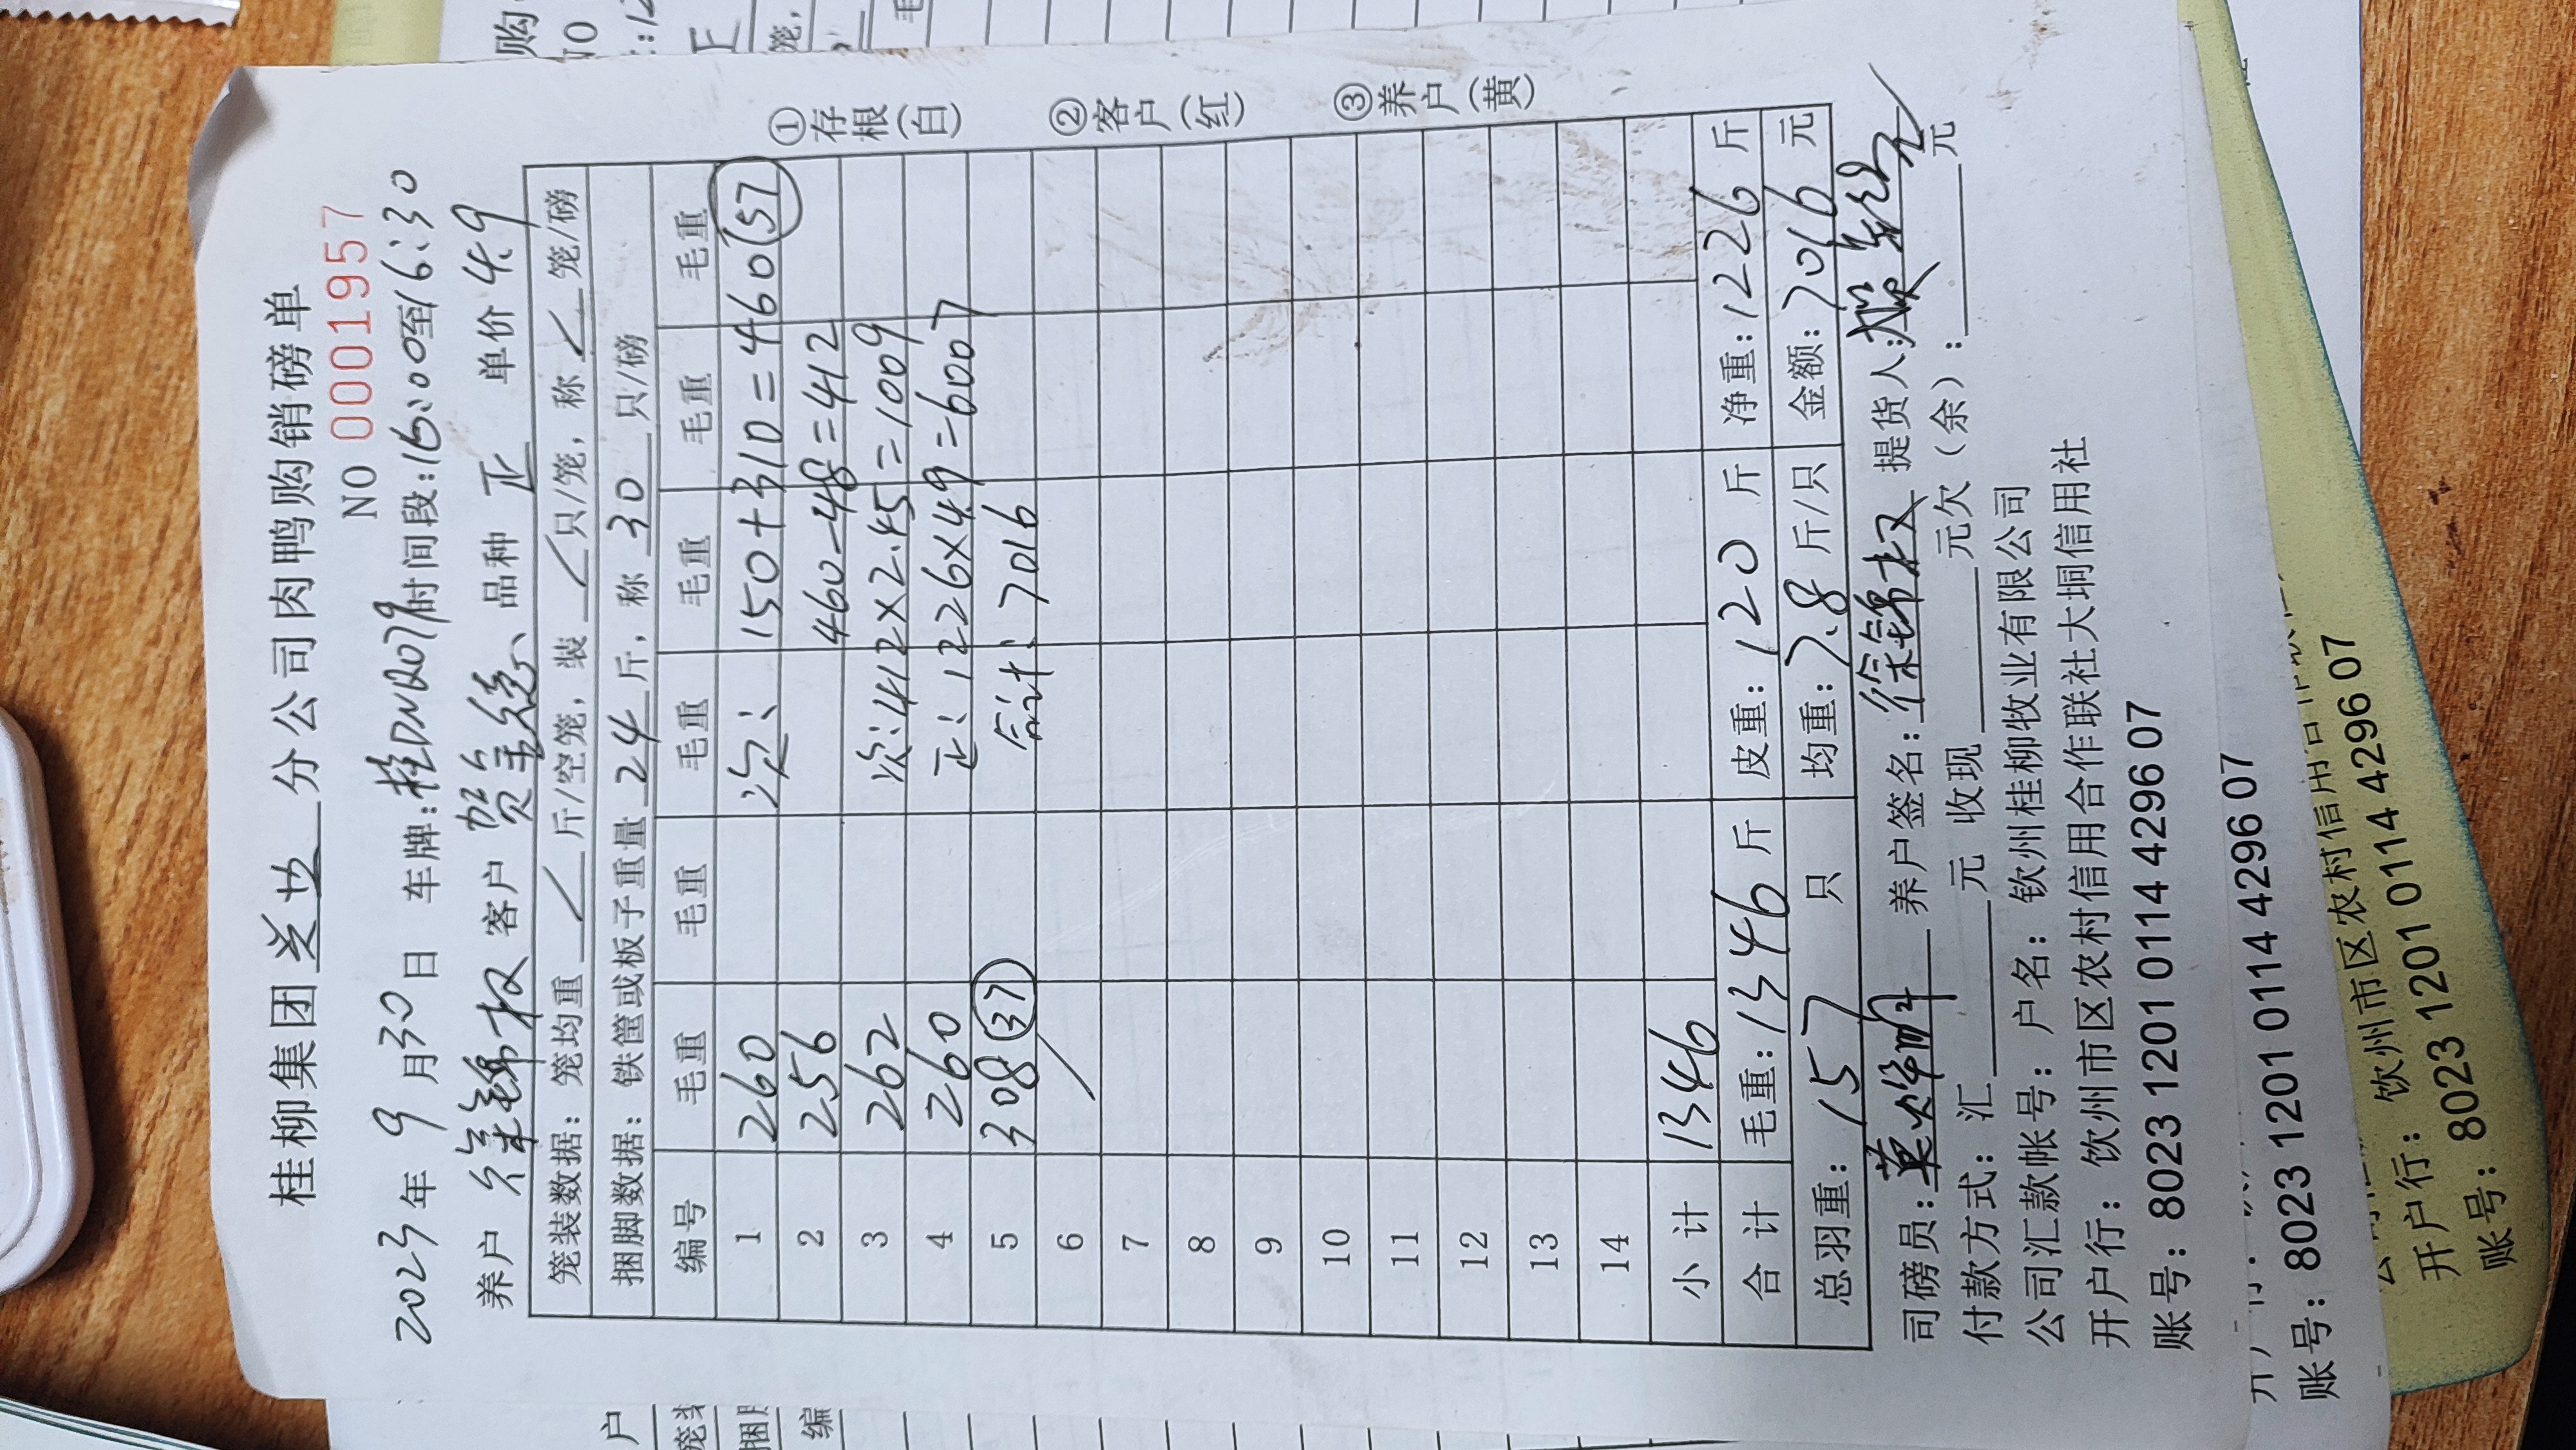 桂柳集团 分公司肉鸭购销磅单
NO 0001957
2023年 9月30日 车牌:桂DNQ079 时间段:16:00至16:30
养户 徐锦权 客户 贺全德 品种 正 单价 4.9
笼装数据: 笼均重 斤/空笼, 装 只/笼, 称 笼/磅
捆脚数据: 铁筐或板子重量 24 斤, 称 30 只/磅
编号 毛重 毛重 毛重 毛重 毛重 毛重
1 260 次: 150+310=460 (57)
2 256 460-48=412
3 262 次:412×2.45=1009
4 260 正:1226×4.9=6007
5 308 (37) 合计:7016
6
7
8
9
10
11
12
13
14
小计 1346
合计 毛重:1346 斤 皮重:120 斤 净重:1226 斤
总羽重: 157 只 均重:7.8 斤/只 金额:7016 元
司磅员: 养户签名:徐锦权 提货人:
付款方式:汇 元 收现 元欠(余): 元
公司汇款帐号: 户名: 钦州桂柳牧业有限公司
开户行: 钦州市区农村信用合作联社大垌信用社
账号: 8023 1201 0114 4296 07
①存根(白)
②客户(红)
③养户(黄)
账号: 8023 1201 0114 4296 07
开户行: 钦州市区农村信用
账号: 8023 1201 0114 4296 07